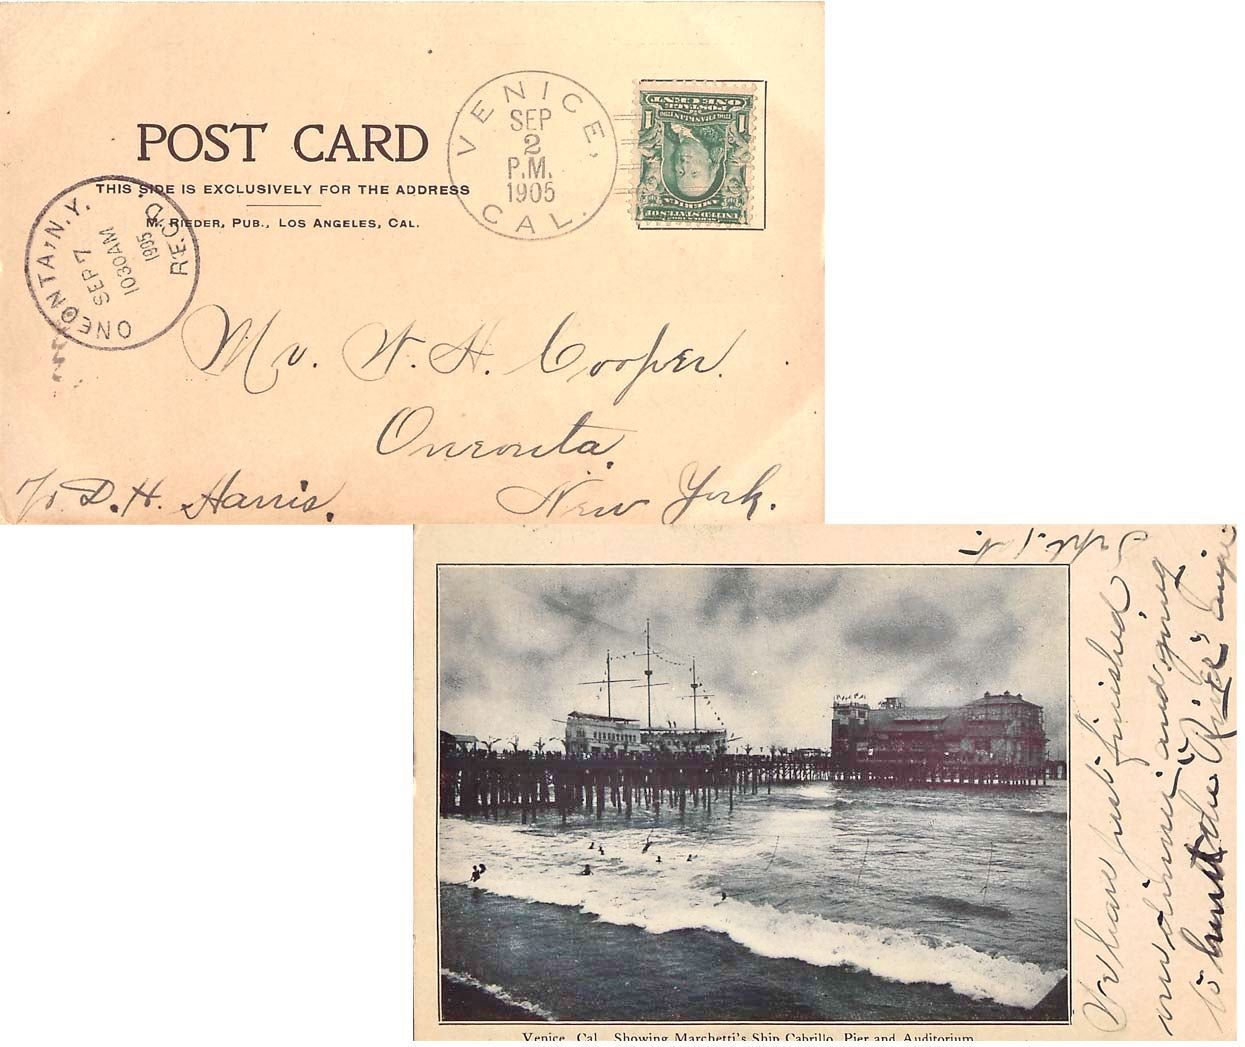 POST CARD
THIS SIDE IS EXCLUSIVELY FOR THE ADDRESS
M. RIEDER, PUB., LOS ANGELES, CAL.
VENICE, CAL.
SEP
2
P.M.
1905
1 1
POSTAGE
ONE CENT
FRANKLIN
SERIES 1902
UNITED STATES OF
AMERICA
ONEONTA, N.Y. REC'D.
SEP 7
1030AM
1905
Mr. W. H. Cooper.
Oneonta.
New York.
c/o D. H. Harris.
Sept. 1st
We have just finished
our dinner and going
to hunt the
Venice, Cal. Showing Marchetti's Ship Cabrillo, Pier and Auditorium